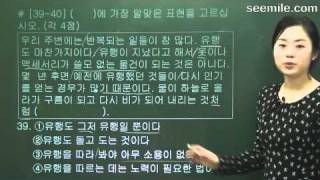 seemile.com
# [39-40] ( )에 가장 알맞은 표현을 고르십
시오. (각 4점)
우리 주변에는/반복되는 일들이 참 많다. 유행
도 마찬가지이다/유행이 지났다고 해서/옷이나
액세서리가 쓸모 없는 물건이 되는 것은 아니다.
몇 년 후면/예전에 유행했던 것들이/다시 인기
를 얻는 경우가 많기 때문이다. 물이 하늘로 올
라가 구름이 되고 다시 비가 되어 내리는 것처
럼 ( ).
39. ①유행도 그저 유행일 뿐이다
②유행도 돌고 도는 것이다
③유행을 따라/봐야 아무 소용이 없
④유행을 따르는 데는 노력이 필요한 법이